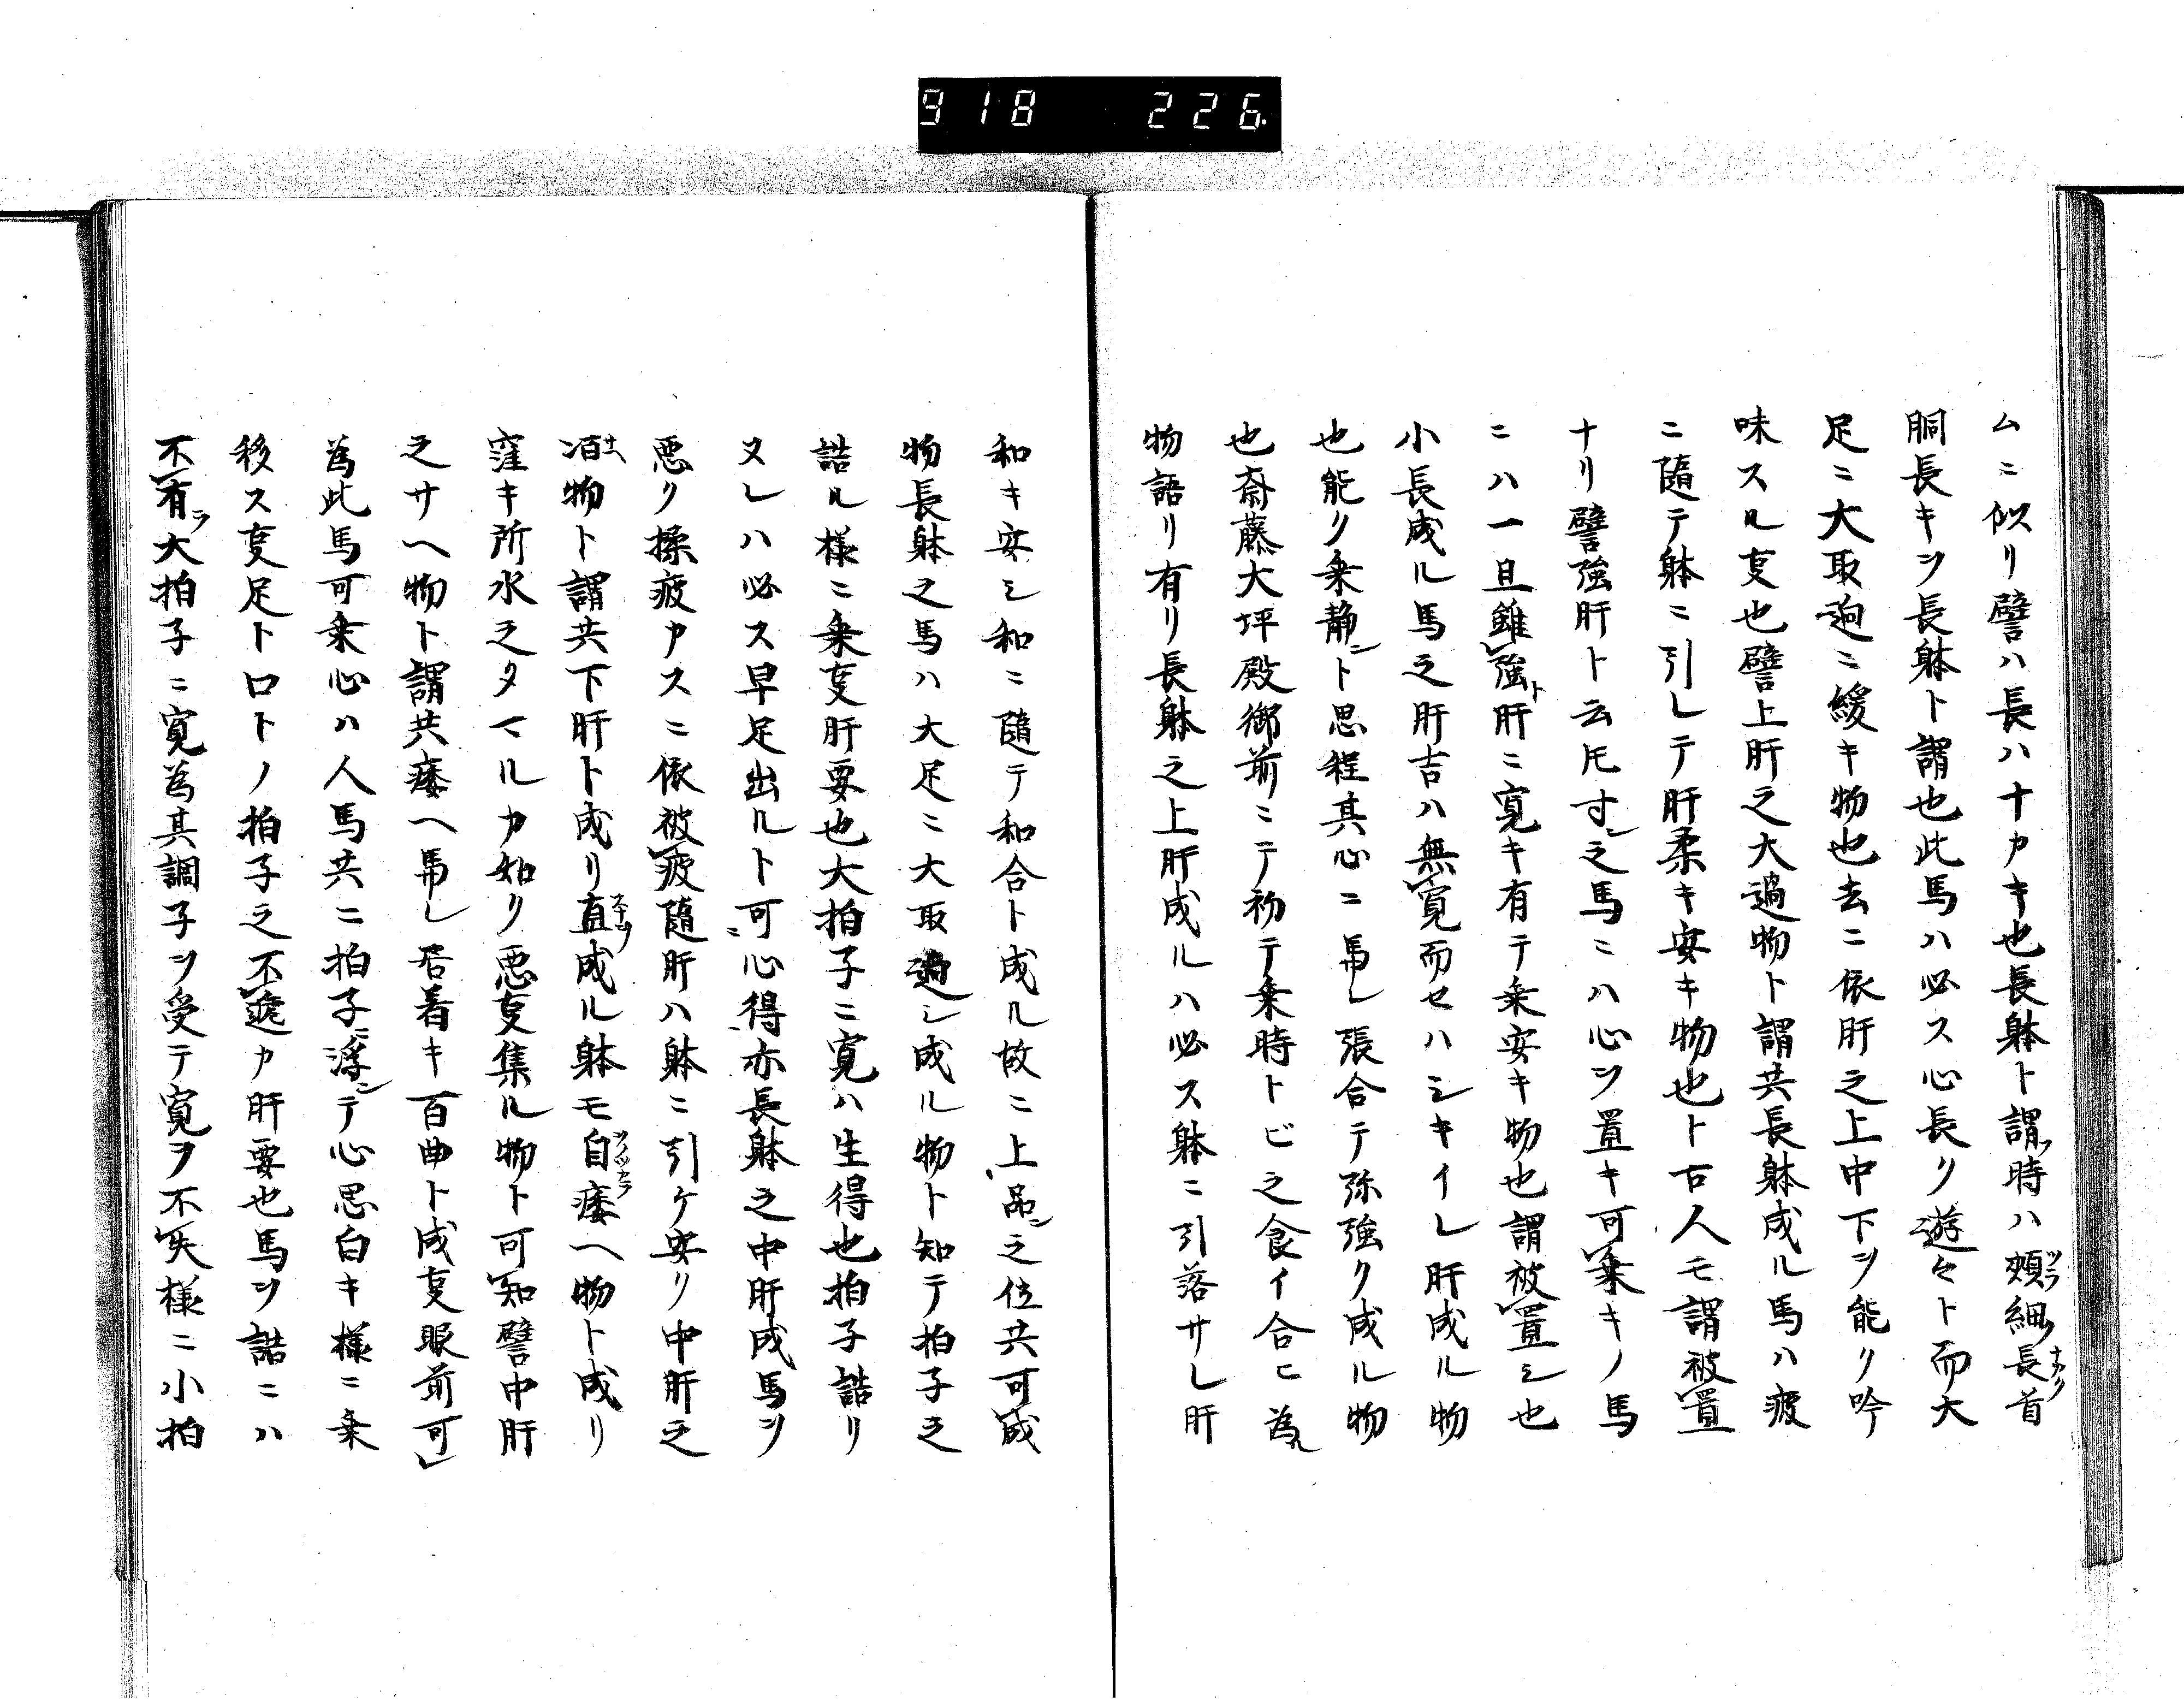 918 226
ムニ似リ譬ハ長ハナカキ也長躰ト謂時ハ頬細長首
胴長キヲ長躰ト謂也此馬ハ必ス心長ク遊々ト而大
足ニ大取廻ニ緩キ物也去ニ依肝之上中下ヲ能ク吟
味スル叓也譬上肝之大過物ト謂共長躰成ル馬ハ疲
ニ随テ躰ニ引レテ肝柔キ安キ物也ト古人モ謂被置
ナリ譬強肝ト云圧寸之馬ニハ心ヲ置キ可乗キノ馬
ニハ一旦雖強肝ニ寛キ有テ乗安キ物也謂被置シ也
小長成ル馬之肝吉ハ無寛而セハシキイレ肝成ル物
也能ク乗静ト思程其心ニ馬レ張合テ弥強ク成ル物
也斎藤大坪殿御前ニテ初テ乗時トビ之食イ合ヒ為ル
物語リ有リ長躰之上肝成ルハ必ス躰ニ引落サレ肝
和キ安シ和ニ随テ和合ト成ル故ニ上品之位共可成
物長躰之馬ハ大足ニ大取過シ成ル物ト知テ拍子之
詰ル様ニ乗叓肝要也大拍子ニ寛ハ生得也拍子詰リ
ヌレハ必ス早足出ルト可心得亦長躰之中肝成馬ヲ
悪ク揉疲カスニ依被疲随肝ハ躰ニ引ケ安リ中肝之
物ト謂共下肝ト成リ直成ル躰モ自痿ヘ物ト成リ
窪キ所水之タマルカ如ク悪叓集ル物ト可知譬中肝
之サヘ物ト謂共痿ヘ馬レ居着キ百曲ト成叓眼前可レ
為此馬可乗心ハ人馬共ニ拍子ニ浮テ心思白キ様ニ乗
移ス叓足ト口トノ拍子之不違カ肝要也馬ヲ詰ニハ
不有大拍子ニ寛為其調子ヲ受テ寛ヲ不失様ニ小拍